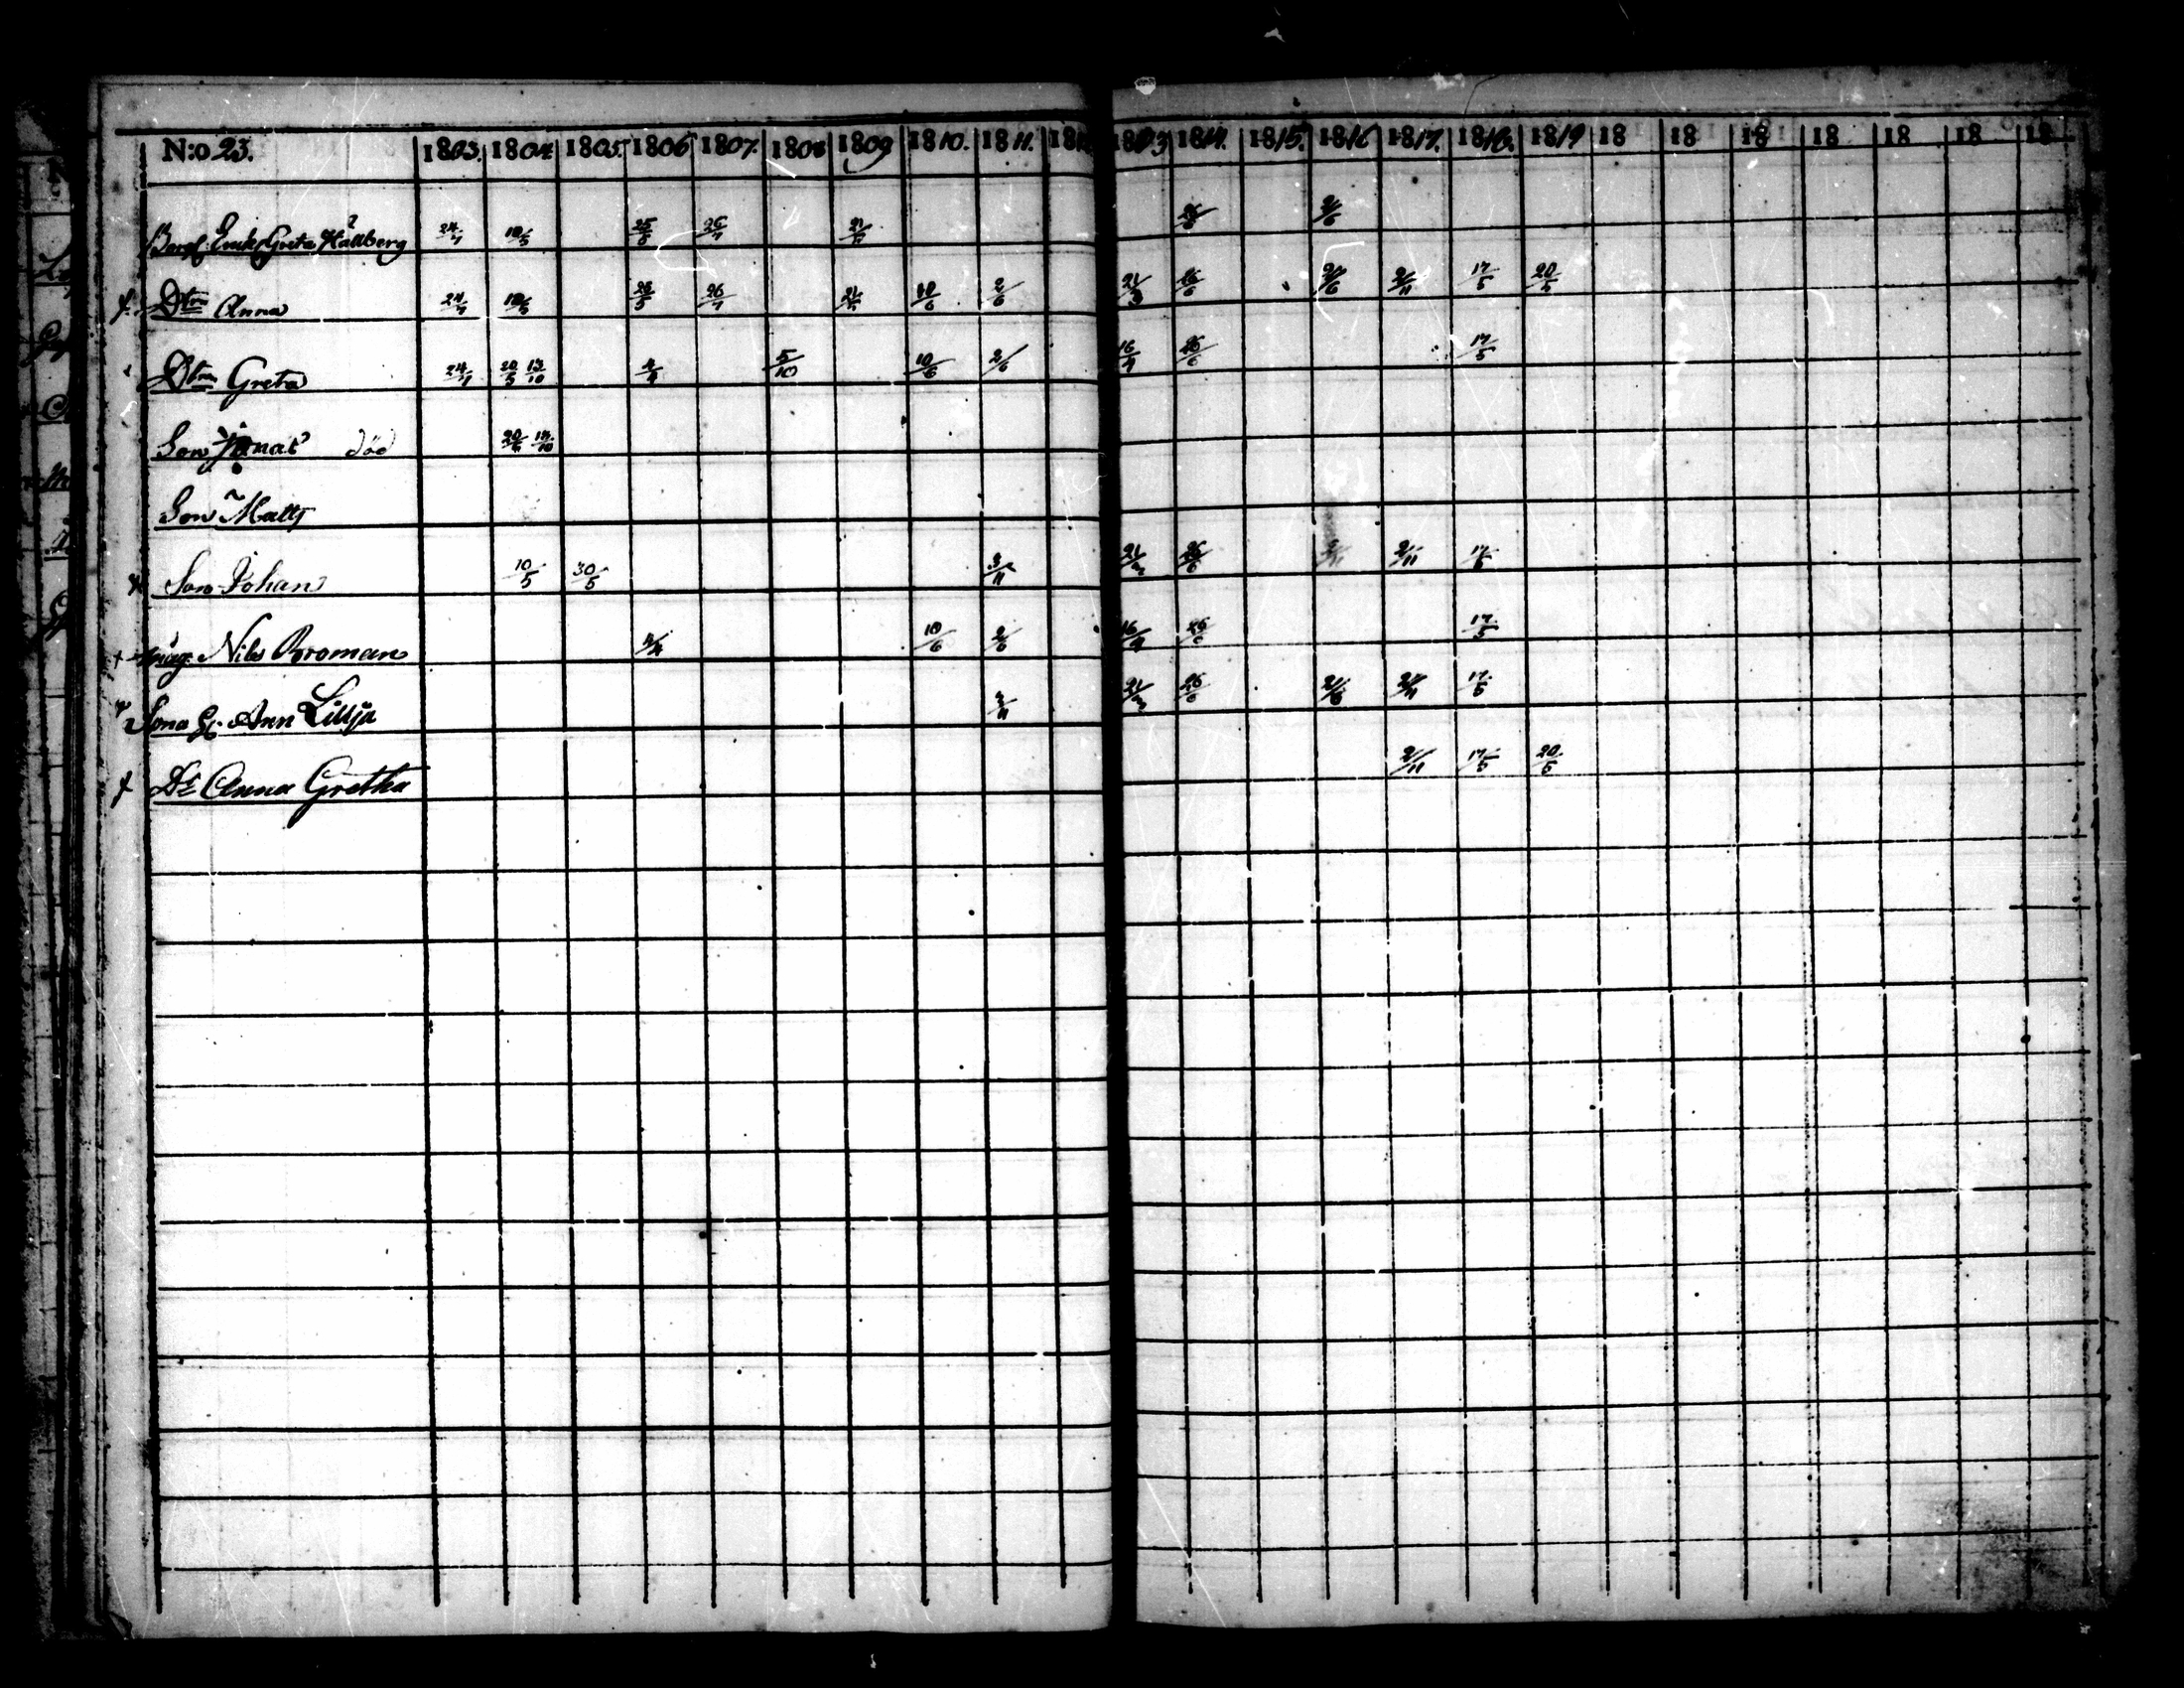 N:o 23. 1803. 1804 1805. 1806 1807. 1808 1809 1810. 1811. 1813 1814. 1815. 1816 1817. 1818. 1819 18 18 18 18 18 18 18
Erik Greta Hällberg 24/4 25/5 26/4 26/6 2/6
Dtrn Anna 24/4 25/5 26/4 10/6 2/6 21/3 26/6 2/6 2/11 17/5 20/5
Dtrn Greta 24/4 20/5 13/10 4/4 5/10 10/6 2/6 16/4 26/6 17/5
Son död 20/5 13/10
Son Matts
Son Johan 10/5 30/5 3/11 21/3 26/6 2/11 17/5
Nils Broman 4/4 10/6 2/6 16/4 26/6 17/5
Ann Lillja 3/11 21/3 26/6 2/6 2/11 17/5
Dr Anna Gretha 2/11 17/5 20/5